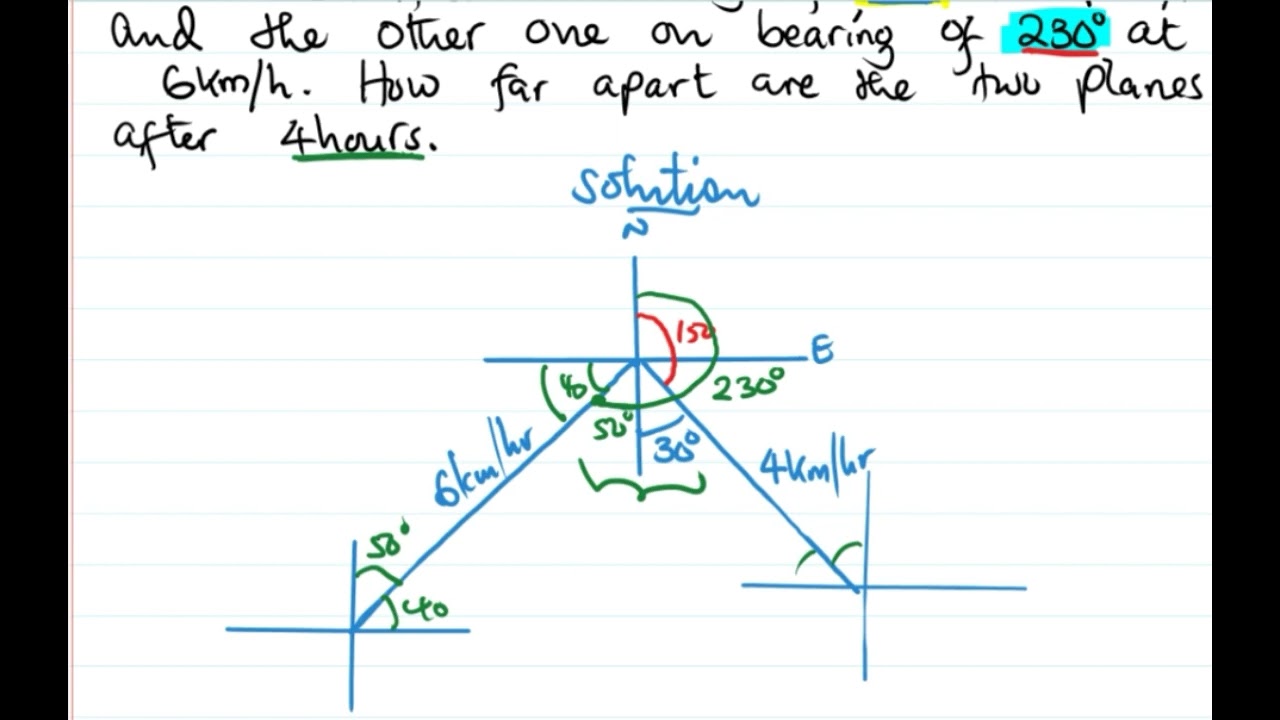 and the other one on bearing of 230° at
6km/h. How far apart are the two planes
after 4hours.
Solution
N
150
E
40
230°
50°
30°
6km/hr
4km/hr
50°
40